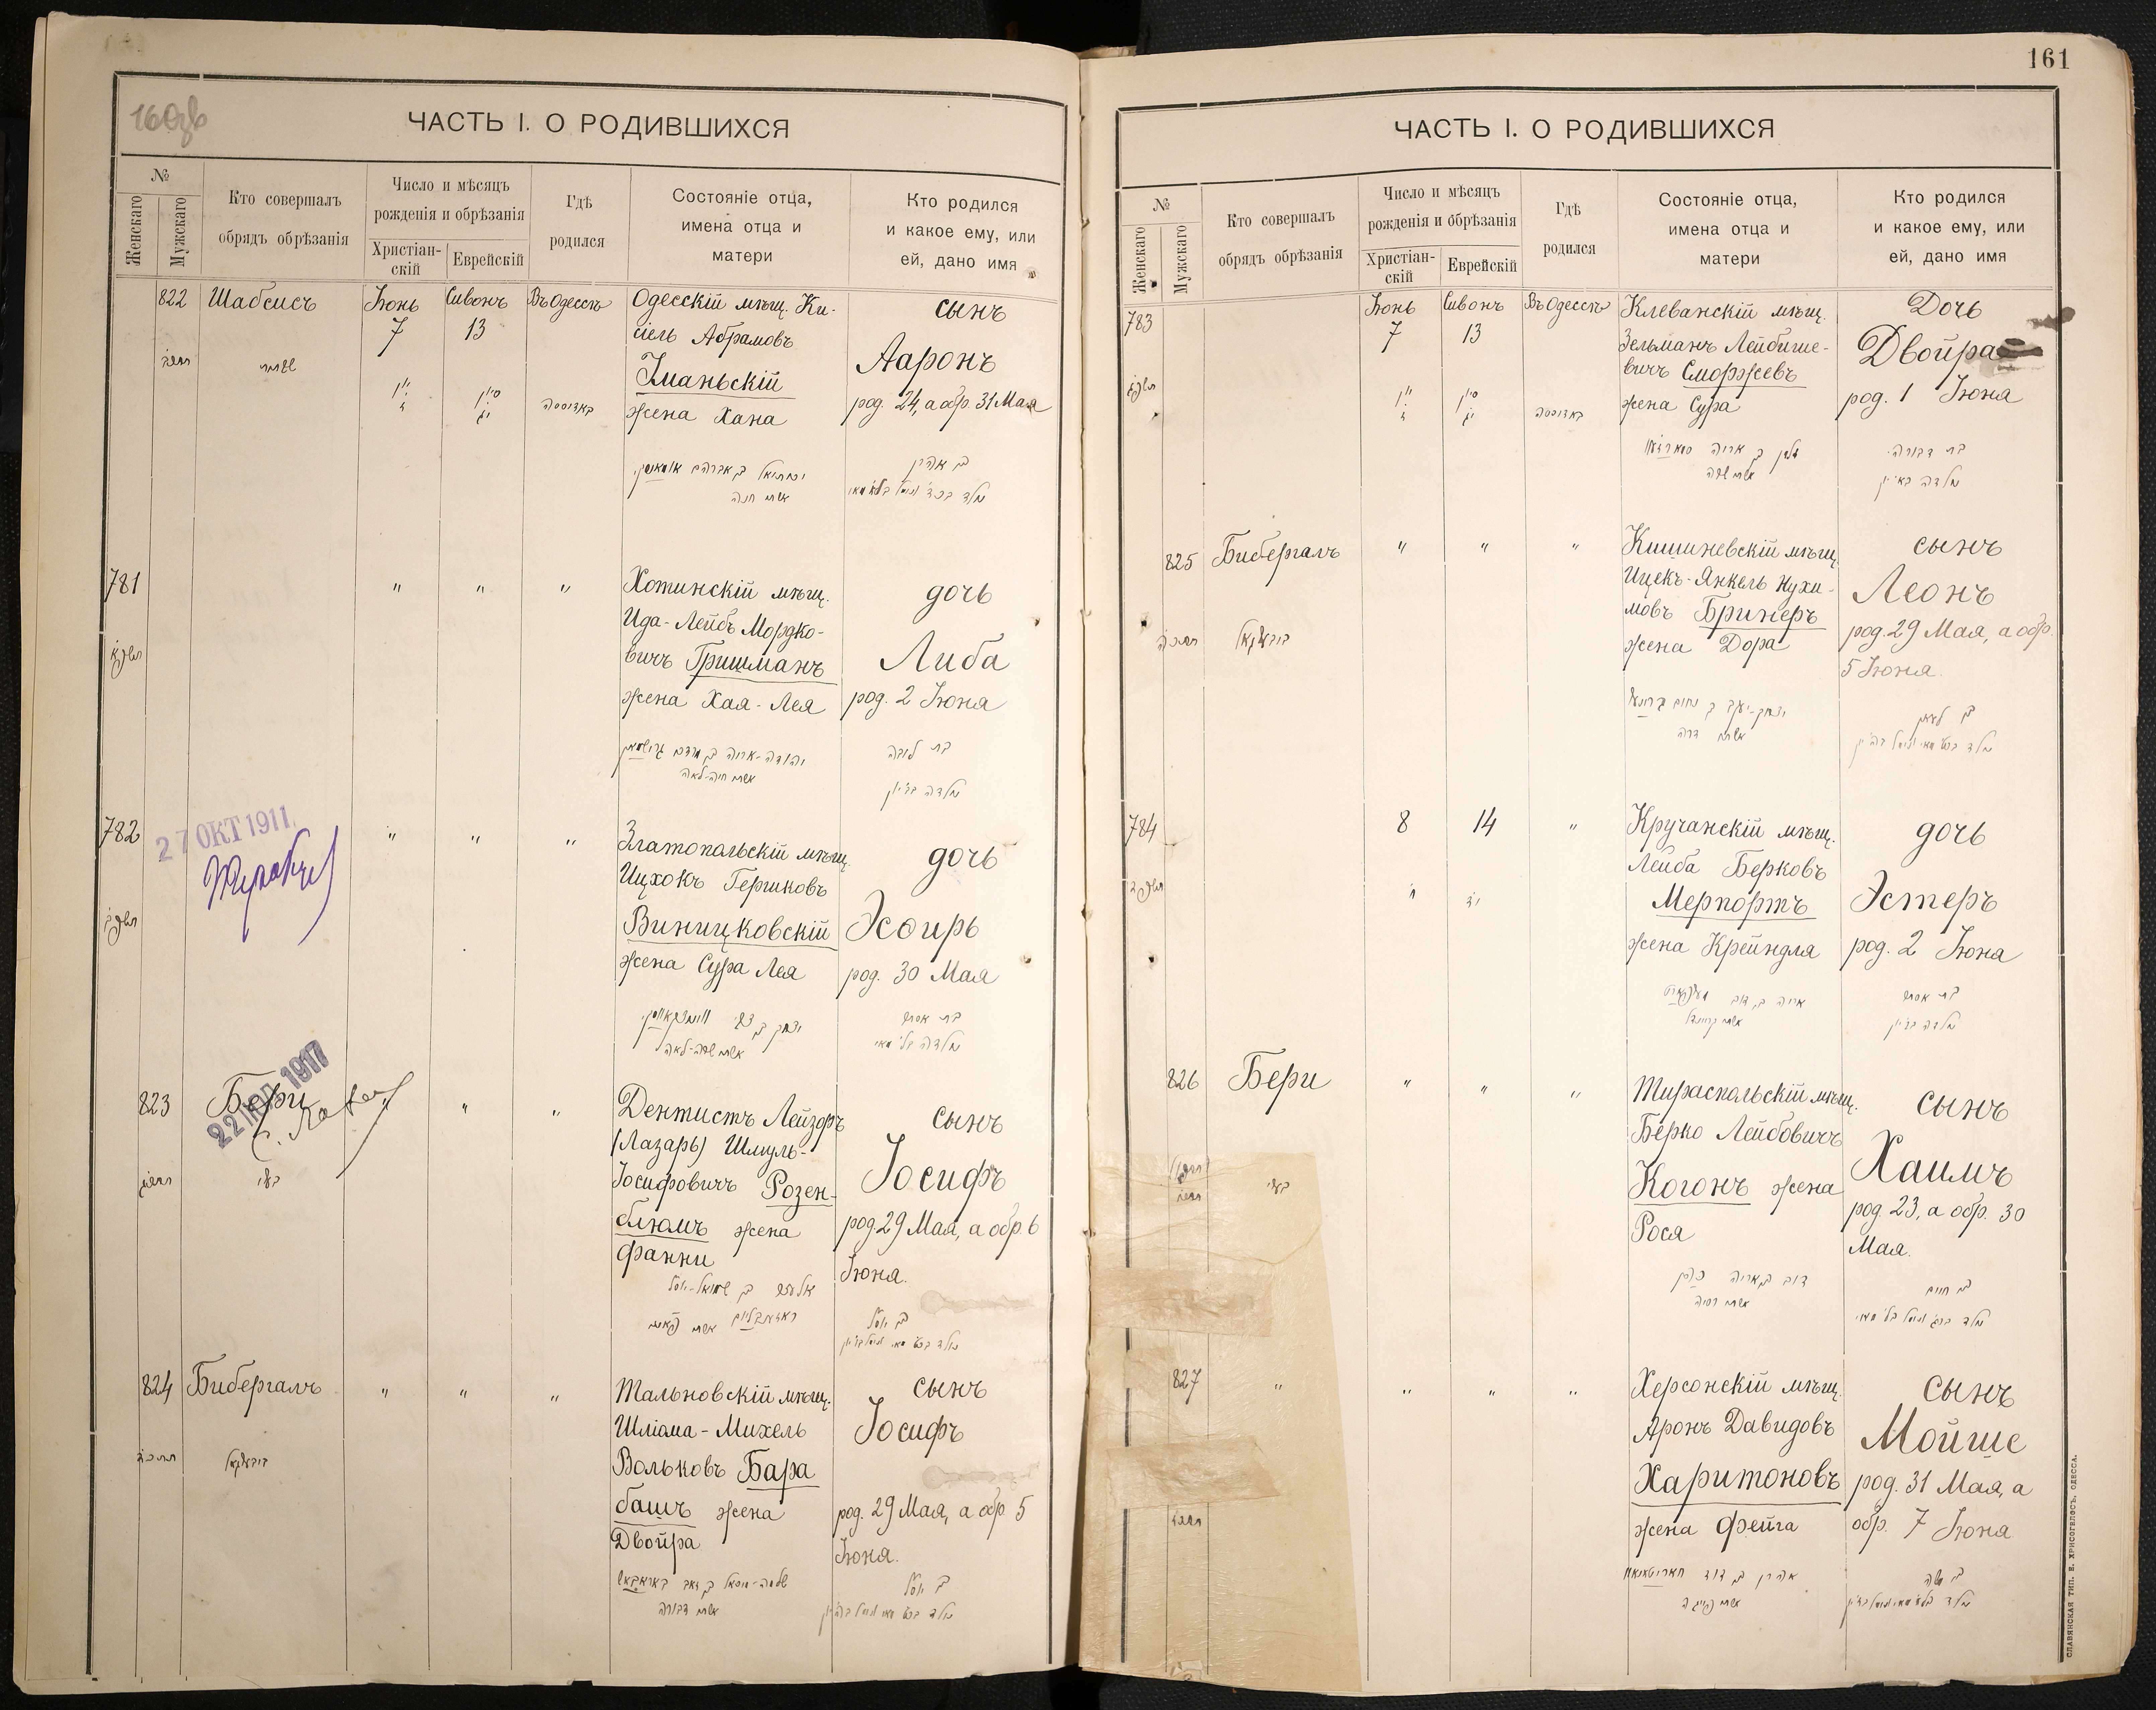 160зв
ЧАСТЬ I. О РОДИВШИХСЯ
№
Женскаго
Мужскаго
Кто совершалъ
обрядъ обрѣзанія
Число и мѣсяцъ
рожденія и обрѣзанія
Христіан-
скій
Еврейскій
Гдѣ
родился
Состояніе отца,
имена отца и
матери
Кто родился
и какое ему, или
ей, дано имя
822 Шабсисъ Іюнь Сивонъ Въ Одессѣ Одесскій мѣщ. Ки- сынъ
7 13 сіель Абрамовъ
Ааронъ
Уманьскій
жена Хана род. 24, а обр. 31 Мая
באדעססא
בן אהרן
אשתו חנה
781 " " " Хотинскій мѣщ. дочь
Ида-Лейбъ Мордко-
вичъ Гришманъ Либа
жена Хая-Лея род. 2 Іюня
בת ליבה
אשתו חיה-לאה
782 " " " Златопольскій мѣщ. дочь
27 ОКТ 1911
Ицхокъ Гершковъ
Виницковскій Эсѳирь
жена Сура Лея род. 30 Мая
בת אסתר
אשתו שרה-לאה
823 Бери " " " Дентистъ Лейзоръ сынъ
1917
(Лазарь) Шмуль-
Іосифовичъ Розен- Іосифъ
блюмъ жена род. 29 Мая, а обр. 6
Фанни Іюня.
824 Бибергалъ " " " Тальновскій мѣщ. сынъ
Шліома-Михель Іосифъ
Вольковъ Бара
башъ жена род. 29 Мая, а обр. 5
Двойра Іюня.
אשתו דבורה
161
ЧАСТЬ I. О РОДИВШИХСЯ
№
Женскаго
Мужскаго
Кто совершалъ
обрядъ обрѣзанія
Число и мѣсяцъ
рожденія и обрѣзанія
Христіан-
скій
Еврейскій
Гдѣ
родился
Состояніе отца,
имена отца и
матери
Кто родился
и какое ему, или
ей, дано имя
783 Іюнь Сивонъ Въ Одессѣ Клеванскій мѣщ. Дочь
7 13 Зельманъ Лейбише- Двойра
вичъ Сморжевъ
жена Сура род. 1 Іюня
באדעססא
בת דבורה
אשתו שרה
825 Бибергалъ " " " Кишиневскій мѣщ. сынъ
Ицекъ-Янкель Нухи- Леонъ
мовъ Бринеръ род. 29 Мая, а обр.
жена Дора 5 Іюня
784 8 14 " Кручанскій мѣщ. дочь
Лейба Берковъ
Мерпортъ Эстеръ
жена Крейндля род. 2 Іюня
בת אסתר
826 Бери " " " Тираспольскій мѣщ. сынъ
Берко Лейбовичъ
Хаимъ
Когонъ жена
род. 23, а обр. 30
Рося
Мая.
בן חיים
827 " " " " Херсонскій мѣщ. сынъ
Аронъ Давидовъ Мойше
Харитоновъ род. 31 Мая, а
жена Фейга обр. 7 Іюня
בן משה
СЛАВЯНСКАЯ ТИП. Е. ХРИСОГЕЛОСЪ, ОДЕССА.